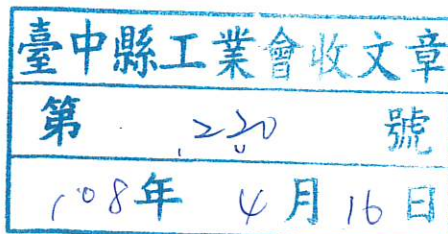 臺中縣工業會收文章
第 220 號
108年 4月16日